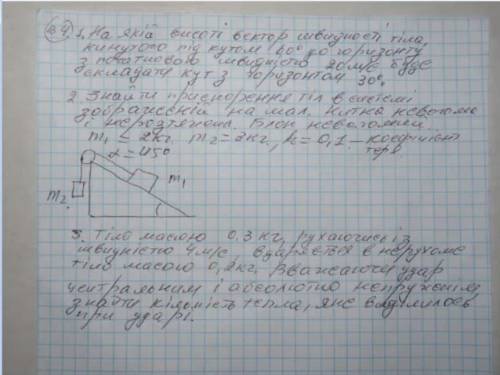 В4 1. На якій висоті вектор швидкості тіла,
кинутого під кутом 60° до горизонту
з початковою швидкістю 20м/с буде
складати кут з горизонтом 30°.
2. Знайти прискорення тіл в системі
зображеній на мал. Нитка невагома
і нерозтяжна. Блок невагомий.
m₁ = 2кг m₂ = 3кг, k = 0,1 - коефіцієнт
α = 45° терт.
m₁
m₂
3. Тіло масою 0,3 кг, рухаючись із
швидкістю 4 м/с, вдаряється в нерухоме
тіло масою 0,2кг. Вважаючи удар
центральним і абсолютно непружнім
знайти кількість тепла, яке виділилось
при ударі.